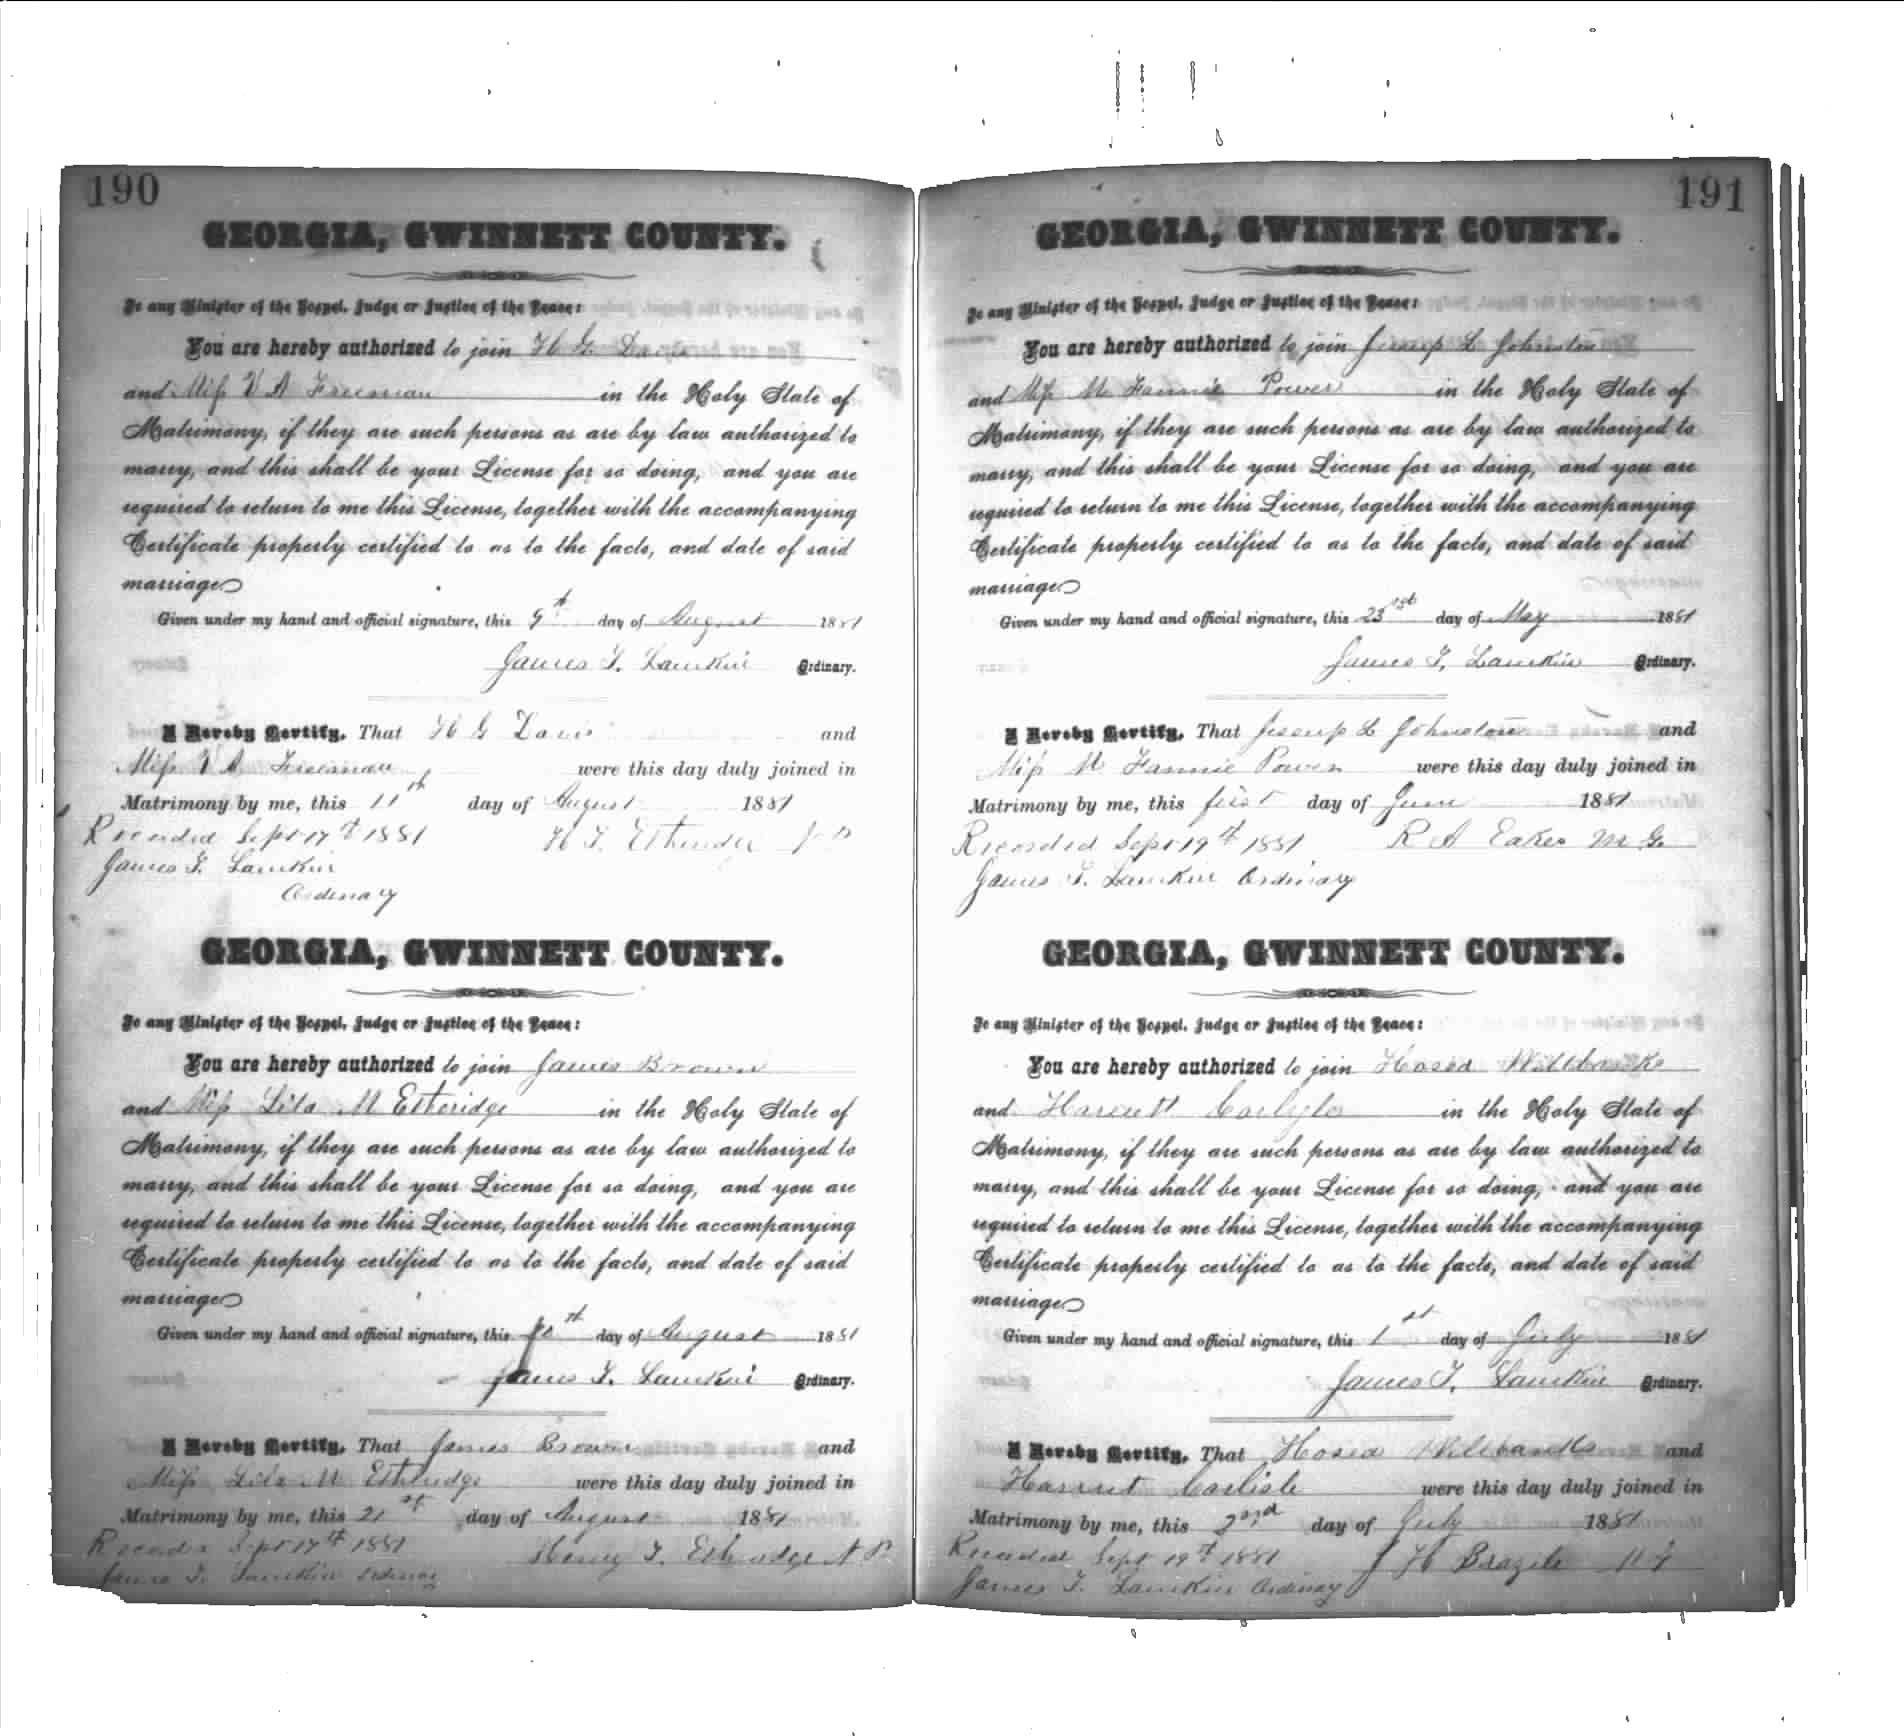 190
GEORGIA, GWINNETT COUNTY.
To any Minister of the Gospel, Judge or Justice of the Peace:
You are hereby authorized to join H G Davis
and Miss V A Freeman in the Holy State of
Matrimony, if they are such persons as are by law authorized to
marry, and this shall be your License for so doing, and you are
required to return to me this License, together with the accompanying
Certificate properly certified to as to the facts, and date of said
marriage
Given under my hand and official signature, this 9th day of August 1881
James T. Lamkin Ordinary.
I Hereby Certify, That H G Davis and
Miss V A Freeman were this day duly joined in
Matrimony by me, this 11th day of August 1881
Recorded Sept 17th 1881 H T Etheridge J P
James T. Lamkin
Ordinary
GEORGIA, GWINNETT COUNTY.
To any Minister of the Gospel, Judge or Justice of the Peace:
You are hereby authorized to join James Brown
and Miss Lila M Etheridge in the Holy State of
Matrimony, if they are such persons as are by law authorized to
marry, and this shall be your License for so doing, and you are
required to return to me this License, together with the accompanying
Certificate properly certified to as to the facts, and date of said
marriage
Given under my hand and official signature, this 10th day of August 1881
James T. Lamkin Ordinary.
I Hereby Certify, That James Brown and
Miss Lila M Etheridge were this day duly joined in
Matrimony by me, this 21st day of August 1881
Recorded Sept 17th 1881 Henry T. Etheridge N P
James T. Lamkin Ordinary
191
GEORGIA, GWINNETT COUNTY.
To any Minister of the Gospel, Judge or Justice of the Peace:
You are hereby authorized to join Jessup L Johnston
and Miss M Fannie Power in the Holy State of
Matrimony, if they are such persons as are by law authorized to
marry, and this shall be your License for so doing, and you are
required to return to me this License, together with the accompanying
Certificate properly certified to as to the facts, and date of said
marriage
Given under my hand and official signature, this 23 day of May 1881
James T. Lamkin Ordinary.
I Hereby Certify, That Jessup L Johnston and
Miss M Fannie Power were this day duly joined in
Matrimony by me, this first day of June 1881
Recorded Sept 19th 1881 R A Eakes M G
James T. Lamkin Ordinary
GEORGIA, GWINNETT COUNTY.
To any Minister of the Gospel, Judge or Justice of the Peace:
You are hereby authorized to join Hosea Willbanks
and Harriett Carlyle in the Holy State of
Matrimony, if they are such persons as are by law authorized to
marry, and this shall be your License for so doing, and you are
required to return to me this License, together with the accompanying
Certificate properly certified to as to the facts, and date of said
marriage
Given under my hand and official signature, this 1st day of July 1881
James T. Lamkin Ordinary.
I Hereby Certify, That Hosea Wilbanks and
Harriet Carlisle were this day duly joined in
Matrimony by me, this 3rd day of July 1881
Recorded Sept 19th 1881 J H Brazile
James T. Lamkin Ordinary